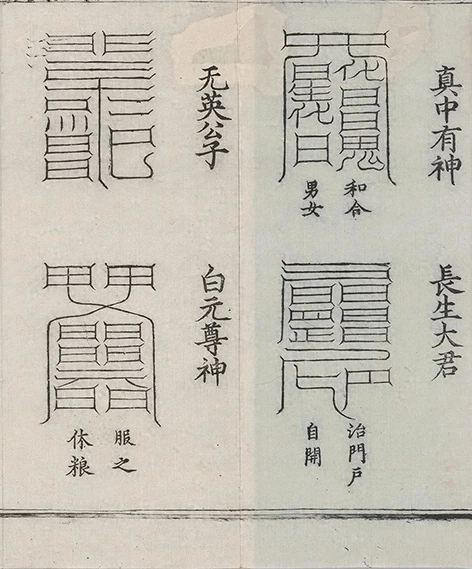 真中有神
和合
男女
長生大君
治門戶
自開
无英公子
白元尊神
服之
休粮